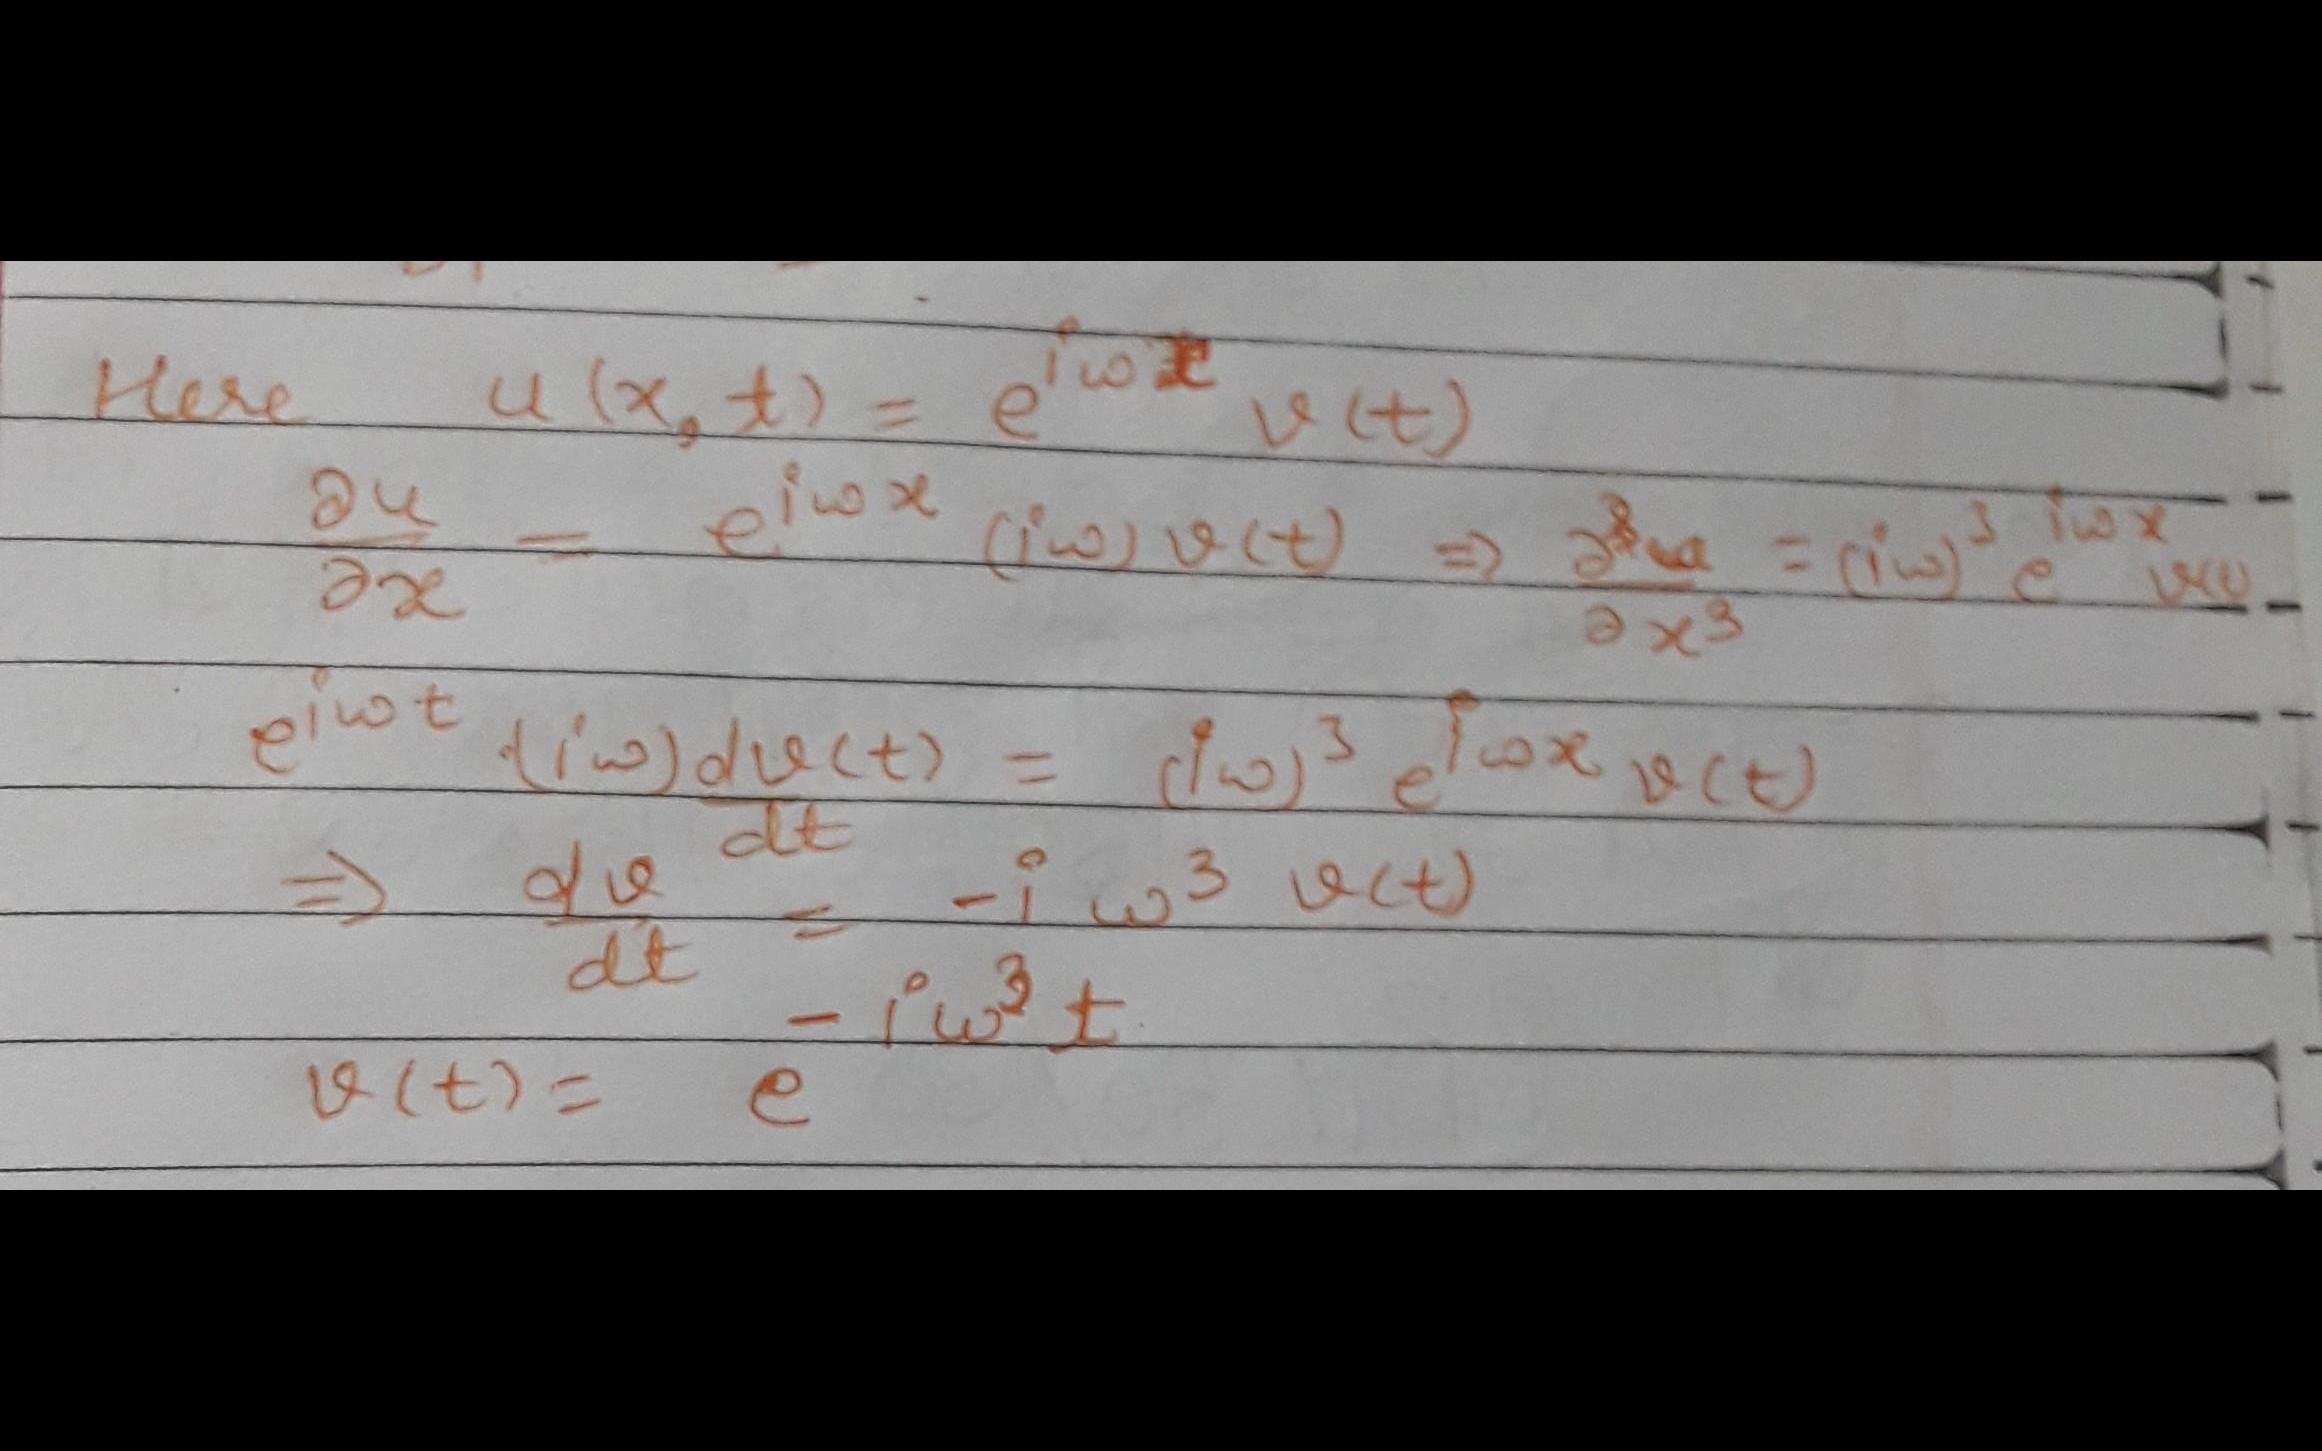 Here u(x, t) = e^{iωx} v(t)
∂u/∂x = e^{iωx} (iω) v(t) ⇒ ∂³u/∂x³ = (iω)³ e^{iωx} v(t)
e^{iωt} (iω) dv(t)/dt = (iω)³ e^{iωx} v(t)
⇒ dv/dt = -i ω³ v(t)
v(t) = e^{-iω³t}